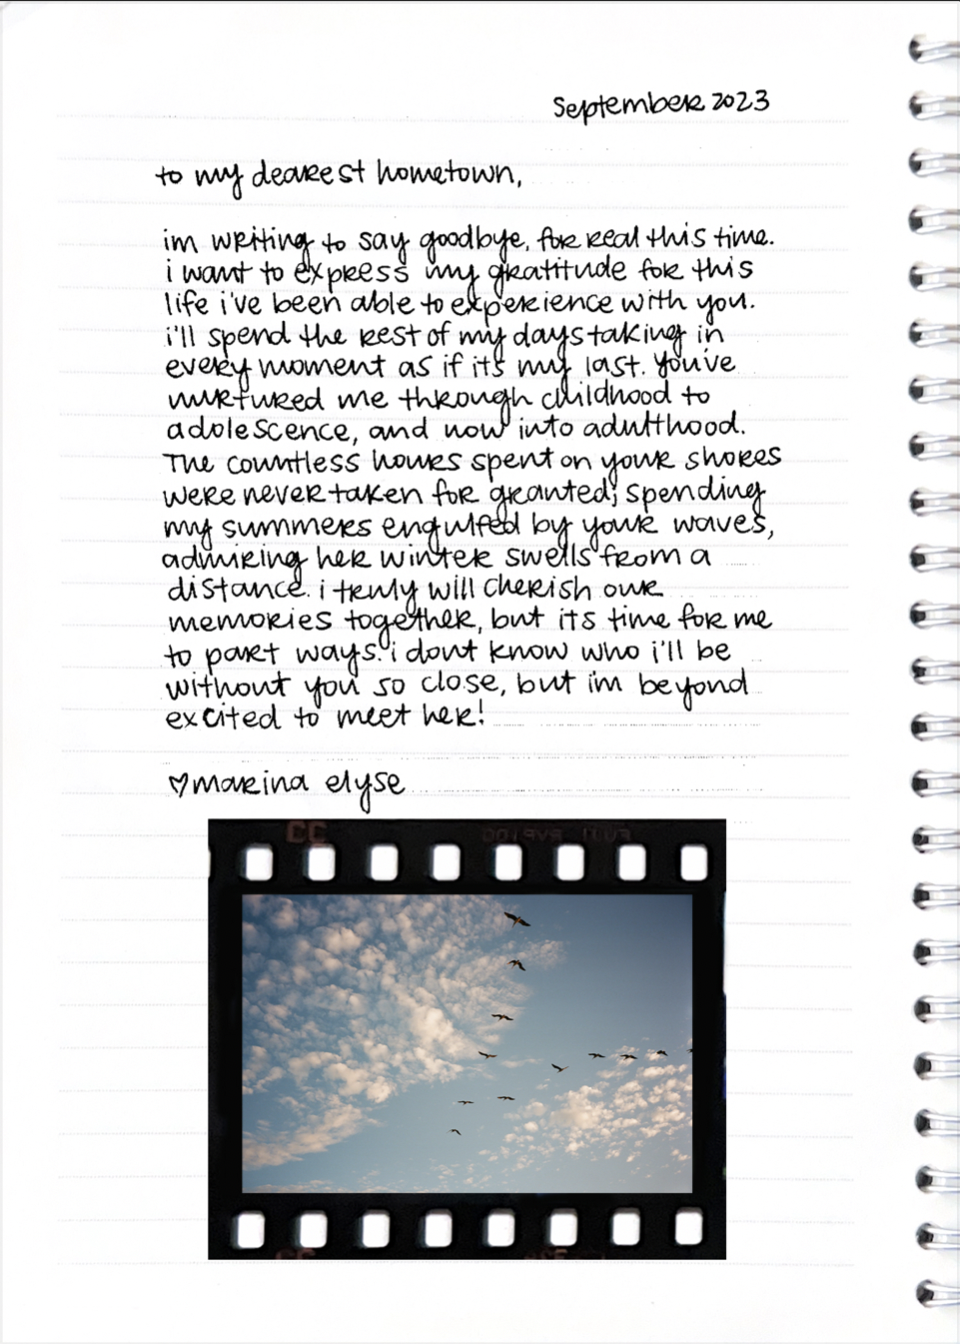 September 2023
to my dearest hometown,
im writing to say goodbye, for real this time.
i want to express my gratitude for this
life i've been able to experience with you.
i'll spend the rest of my days taking in
every moment as if its my last. You've
nurtured me through childhood to
adolescence, and now into adulthood.
The countless hours spent on your shores
were never taken for granted; spending
my summers engulfed by your waves,
admiring her winter swells from a
distance. i truly will cherish our
memories together, but its time for me
to part ways. i dont know who i'll be
without you so close, but im beyond
excited to meet her!
♡marina elyse
CC